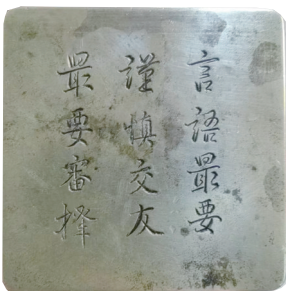 言語最要
謹慎交友
最要審擇